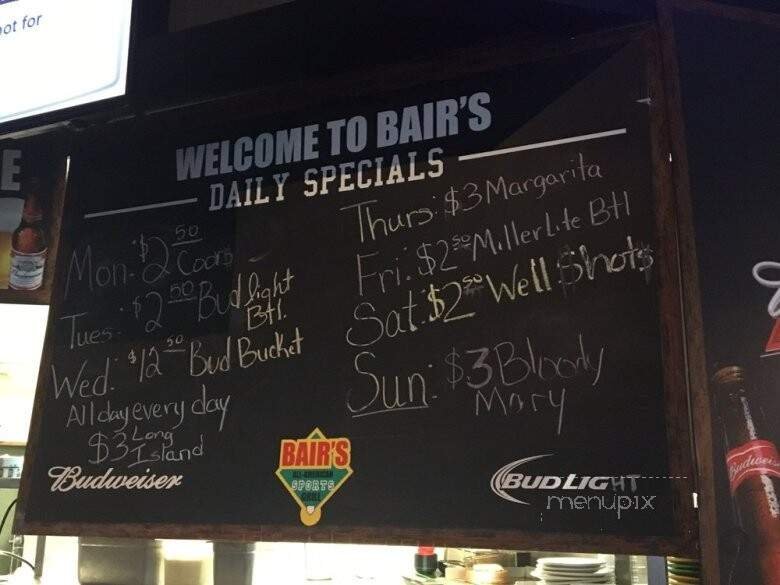 ot for
E
WELCOME TO BAIR'S
DAILY SPECIALS
Mon: $2.50 Coors
Tues: $2.50 Bud light
Btl.
Wed: $12.50 Bud Bucket
All day every day
$3 Long
Island
Thurs: $3 Margarita
Fri: $2.50 Miller Lite Btl
Sat: $2.50 Well Shots
Sun: $3 Bloody
Mary
Budweiser
BAIR'S
ALL-AMERICAN
SPORTS
GRILL
BUD LIGHT
menupix
Budweiser